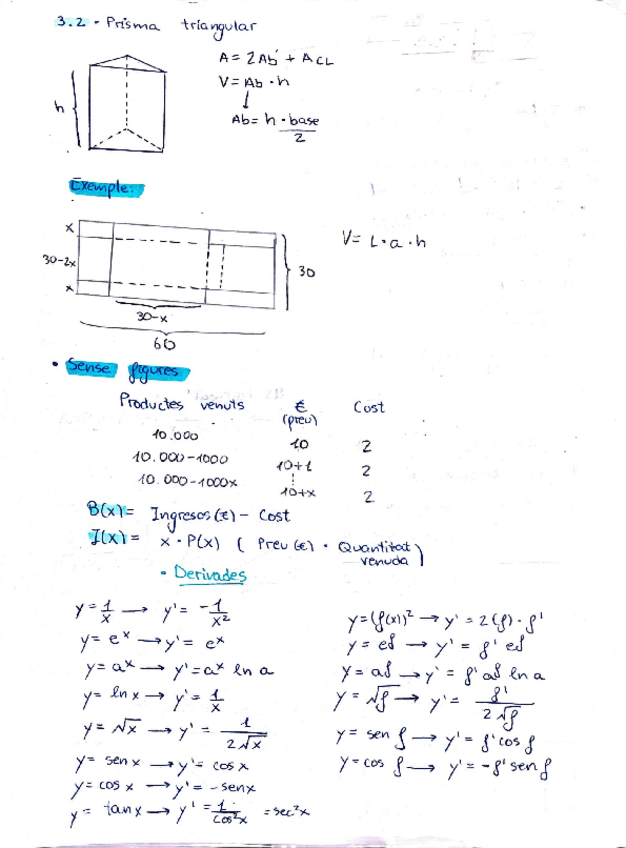 3.2 - Prisma triangular
A = 2Ab + ACL
V = Ab · h
↓
Ab = h · base / 2
h
Exemple:
x
30-2x
x
30-x
60
30
V = L · a · h
• Sense figures
Productes venuts € (preu) Cost
10.000 10 2
10.000-1000 10+1 2
10.000-1000x 10+x 2
B(x) = Ingresos (€) - Cost
I(x) = x · P(x) ( Preu (€) · Quantitat venuda )
• Derivades
y = 1/x → y' = -1/x²
y = eˣ → y' = eˣ
y = aˣ → y' = aˣ ln a
y = ln x → y' = 1/x
y = √x → y' = 1/2√x
y = sen x → y' = cos x
y = cos x → y' = -sen x
y = tan x → y' = 1/cos²x = sec²x
y = (f(x))² → y' = 2(f) · f'
y = eᶠ → y' = f' eᶠ
y = aᶠ → y' = f' aᶠ ln a
y = √f → y' = f'/2√f
y = sen f → y' = f' cos f
y = cos f → y' = -f' sen f